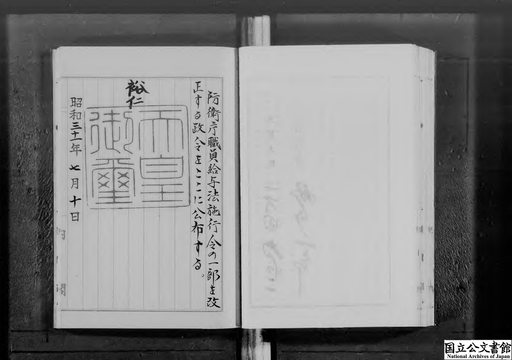 防衛庁職員給与法施行令の一部を改
正する政令をここに公布する。
裕仁
天皇
御璽
昭和三十一年七月十日
国立公文書館
National Archives of Japan